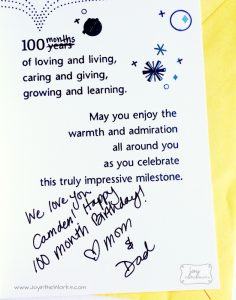 months
100 years
of loving and living,
caring and giving,
growing and learning.
May you enjoy the
warmth and admiration
all around you
as you celebrate
this truly impressive milestone.
We love you
Camden! Happy
100 month Birthday!
♡ Mom
&
Dad
www.JoyintheWorks.com
joy